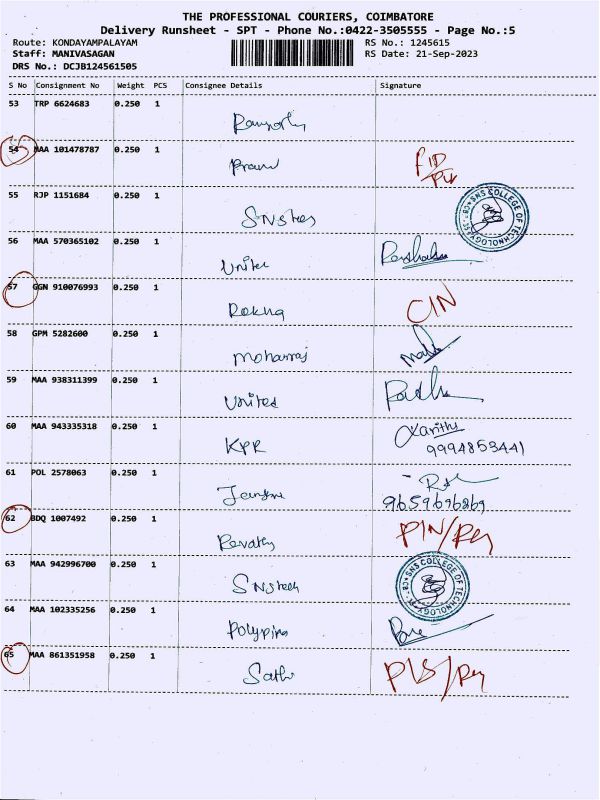 THE PROFESSIONAL COURIERS, COIMBATORE
Delivery Runsheet - SPT - Phone No.:0422-3505555 - Page No.:5
Route: KONDAYAMPALAYAM RS No.: 1245615
Staff: MANIVASAGAN RS Date: 21-Sep-2023
DRS No.: DCJB124561505
S No Consignment No Weight PCS Consignee Details Signature
53 TRP 6624683 0.250 1
54 MAA 101478787 0.250 1
55 RJP 1151684 0.250 1
SNS tech
SNS COLLEGE OF TECHNOLOGY
56 MAA 570365102 0.250 1
United
57 GGN 910076993 0.250 1
Rekha CIN
58 GPM 5282600 0.250 1
Mohanraj
59 MAA 938311399 0.250 1
United
60 MAA 943335318 0.250 1
KPR
9994853441
61 POL 2578063 0.250 1
9659696869
62 BDQ 1007492 0.250 1
Revathy
63 MAA 942996700 0.250 1
SNS tech
SNS COLLEGE OF TECHNOLOGY
64 MAA 102335256 0.250 1
65 MAA 861351958 0.250 1